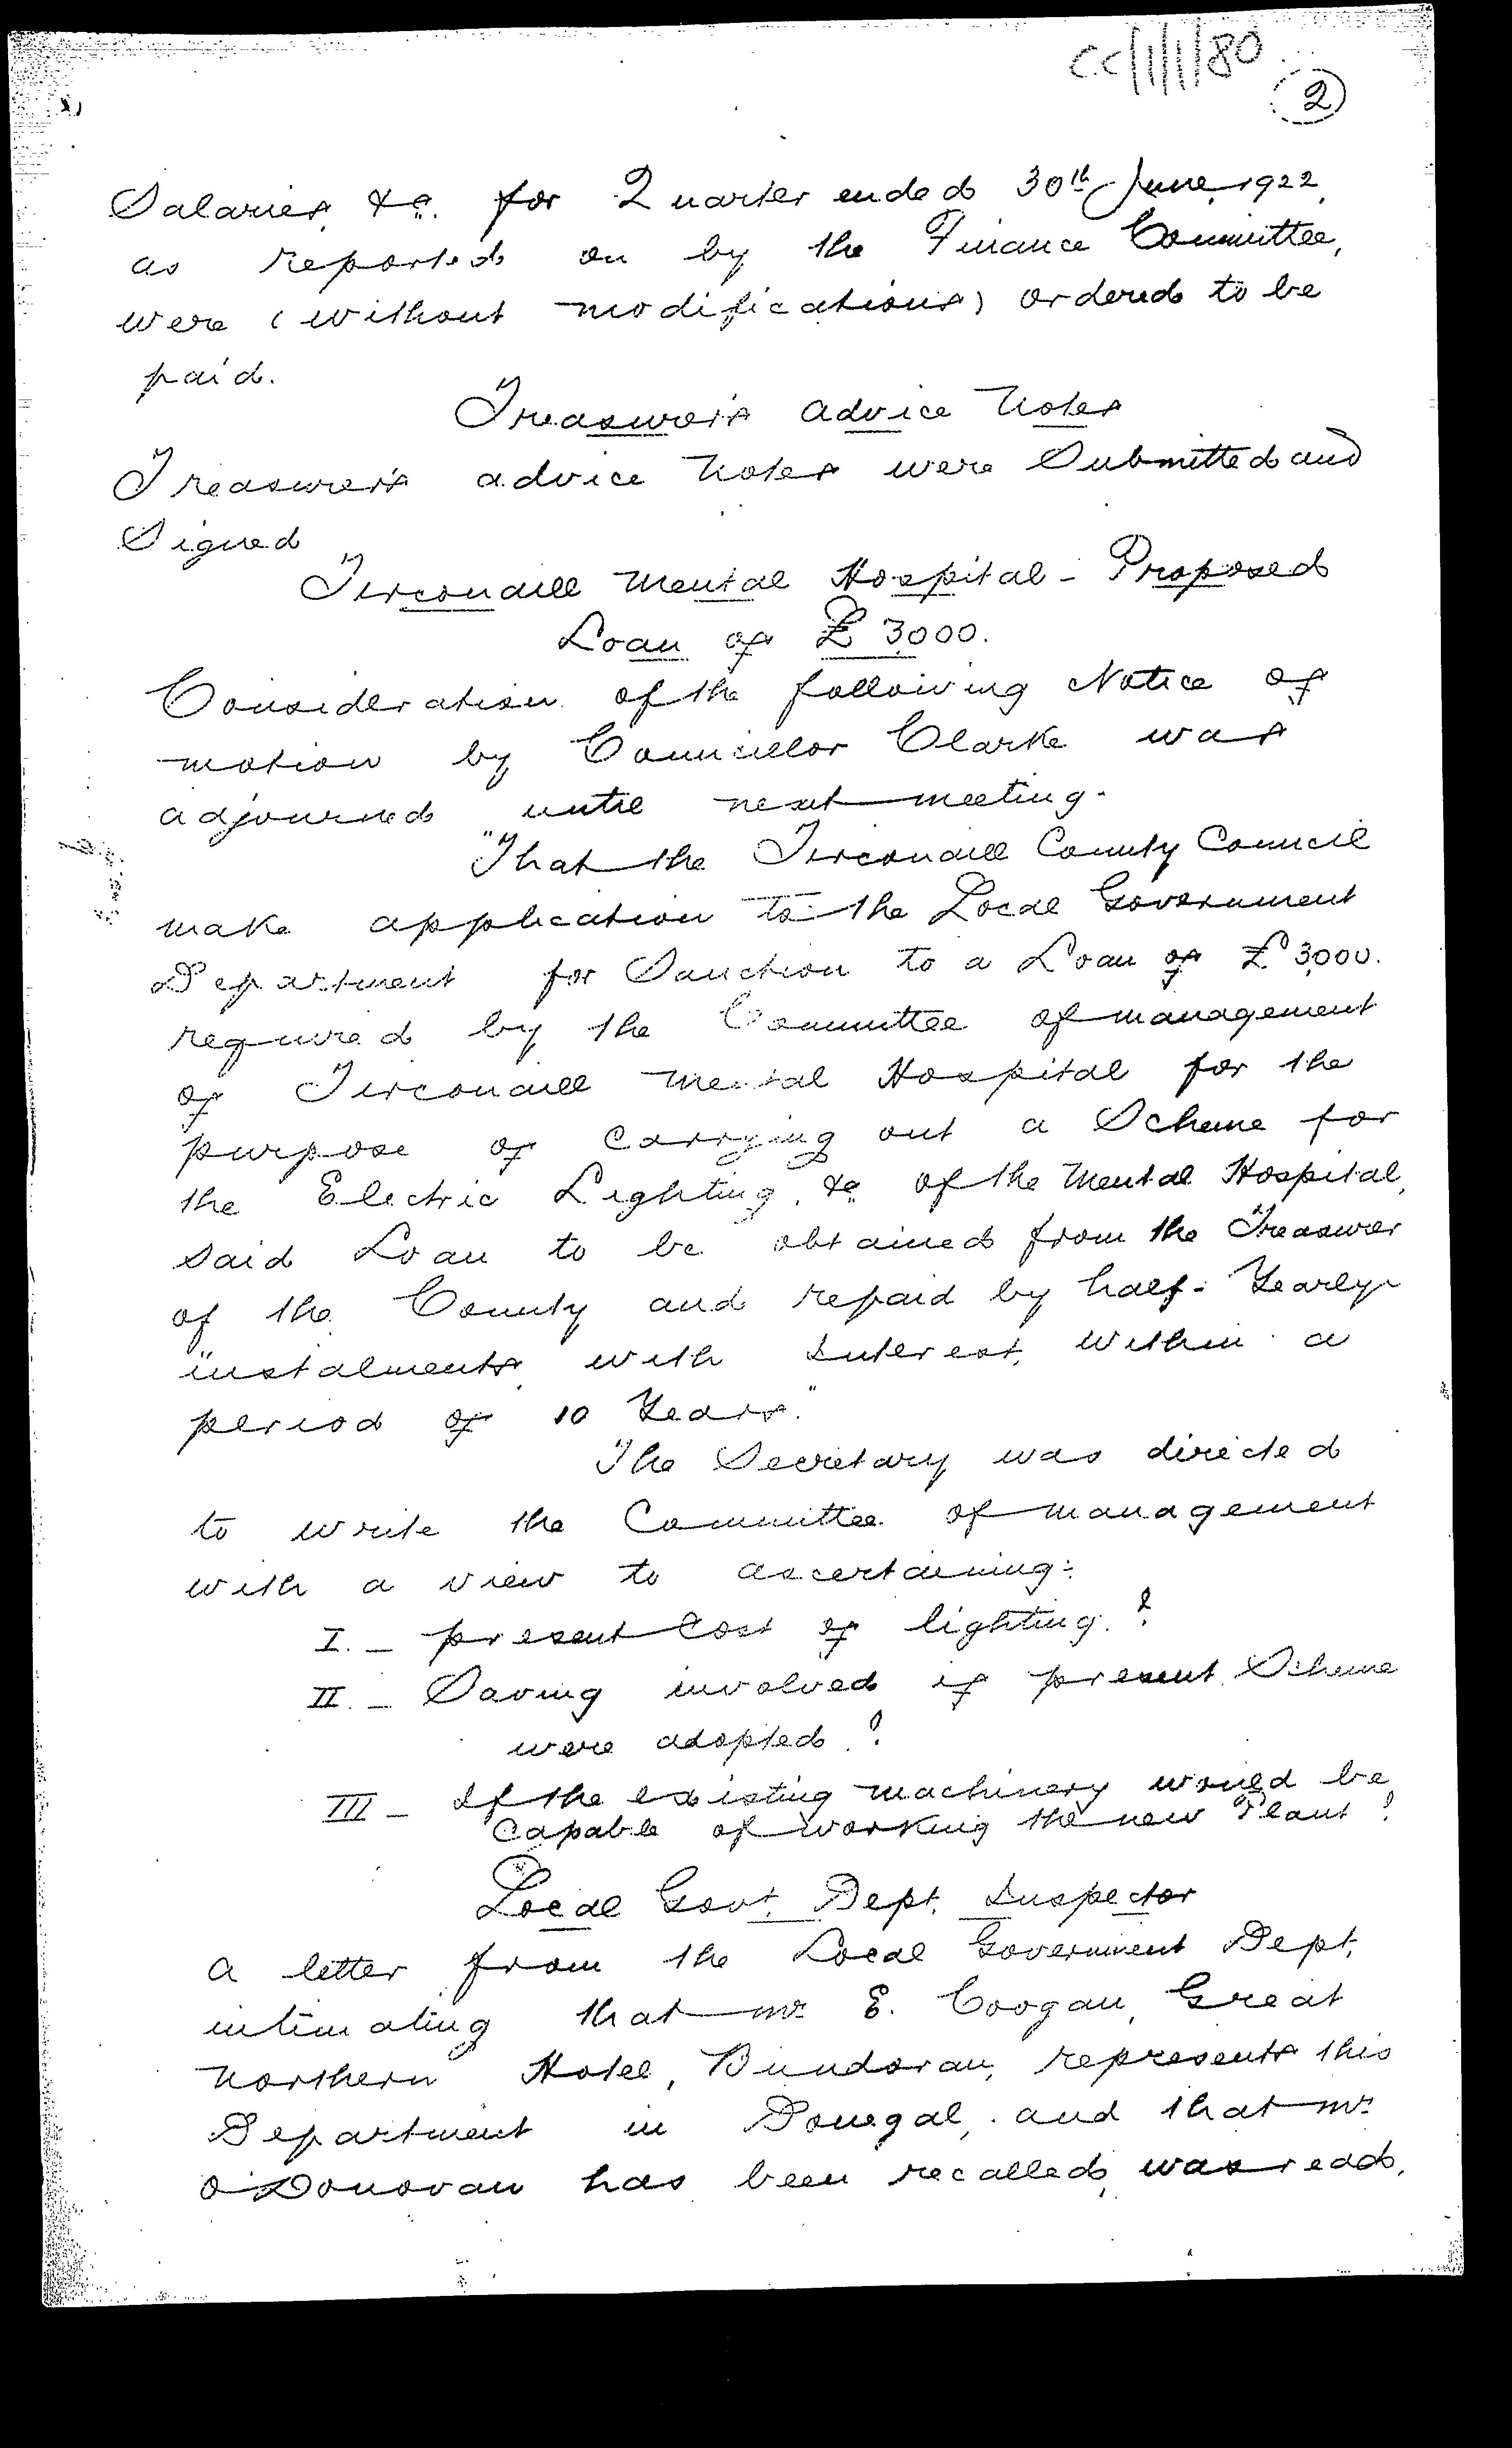 CC/1/1/80
2
Salaries &c. for Quarter ended 30th June, 1922,
as reported on by the Finance Committee,
were (without modifications) ordered to be
paid.
Treasurer's advice Notes
Treasurer's advice Notes were Submitted and
Signed
Tirconaill Mental Hospital - Proposed
Loan of £3000.
Consideration of the following Notice of
motion by Councillor Clarke was
adjourned until next meeting.
"That the Tirconaill County Council
make application to the Local Government
Department for Sanction to a Loan of £3000.
required by the Committee of management
of Tirconaill Mental Hospital for the
purpose of carrying out a Scheme for
the Electric Lighting, &c of the Mental Hospital,
said Loan to be obtained from the Treasurer
of the County and repaid by half-Yearly
instalments, with Interest, within a
period of 10 Years."
The Secretary was directed
to write the Committee of management
with a view to ascertaining:-
I. - present Cost of lighting.?
II. - Saving involved if present Scheme
were adopted?
III - If the existing machinery would be
capable of working the new Plant?
Local Govt. Dept. Inspector
A letter from the Local Government Dept,
intimating that Mr E. Coogan, Great
Northern Hotel, Bundoran, represents this
Department in Donegal, and that Mr
O'Donovan has been recalled, was read.